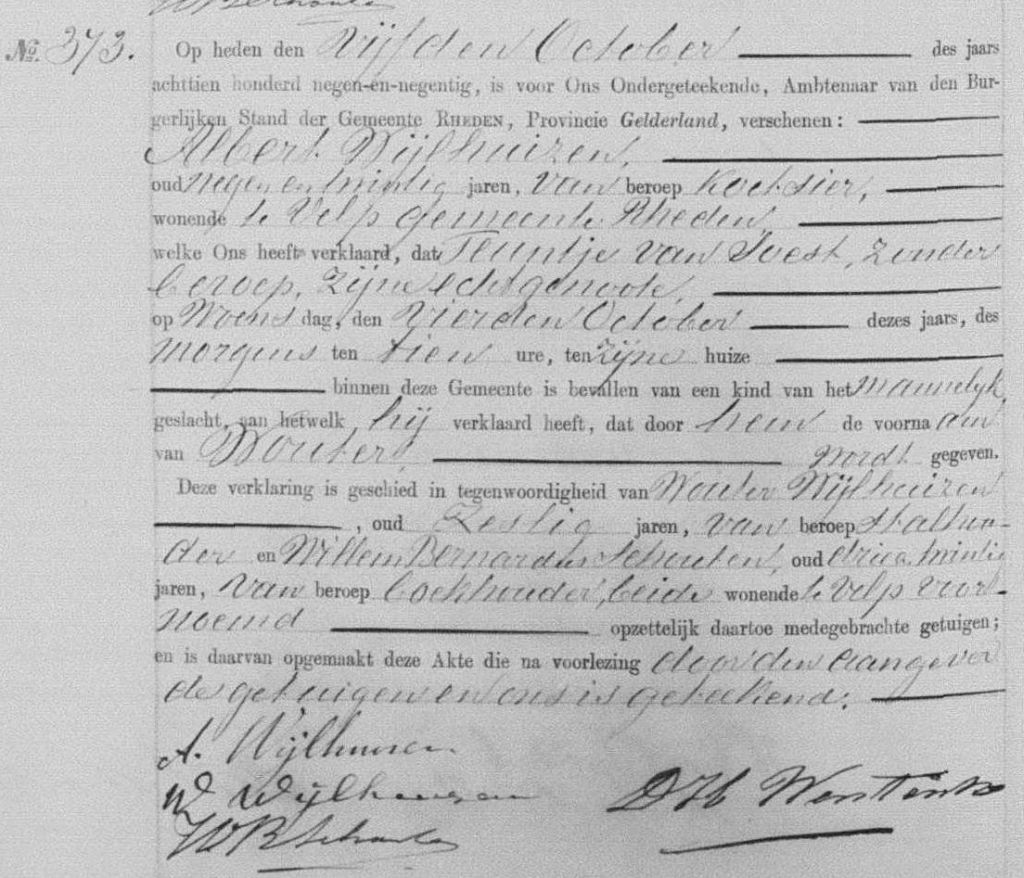 No. 373. Op heden den Vijfden October des jaars
achttien honderd negen-en-negentig, is voor Ons Ondergeteekende, Ambtenaar van den Bur-
gerlijken Stand der Gemeente RHEDEN, Provincie Gelderland, verschenen:
Albert Wijlhuizen,
oud negen en twintig jaren, van beroep koetsier,
wonende te Velp gemeente Rheden,
welke Ons heeft verklaard, dat Teuntje van Soest, zonder
beroep, zijne echtgenoote,
op Woensdag, den Vierden October dezes jaars, des
morgens ten tien ure, ten zijne huize
binnen deze Gemeente is bevallen van een kind van het mannelijk
geslacht, aan hetwelk hij verklaard heeft, dat door hem de voornaam
van Wouter, wordt gegeven.
Deze verklaring is geschied in tegenwoordigheid van Wouter Wijlhuizen
, oud Zestig jaren, van beroep stalhou-
der en Willem Bernardus Schouten, oud drie en twintig
jaren, van beroep boekhouder, beide wonende te Velp voor-
noemd opzettelijk daartoe medegebrachte getuigen;
en is daarvan opgemaakt deze Akte die na voorlezing door den aangever
de getuigen en ons is geteekend.
A. Wijlhuizen
W Wijlhuizen
WB Schouten DH Wentink